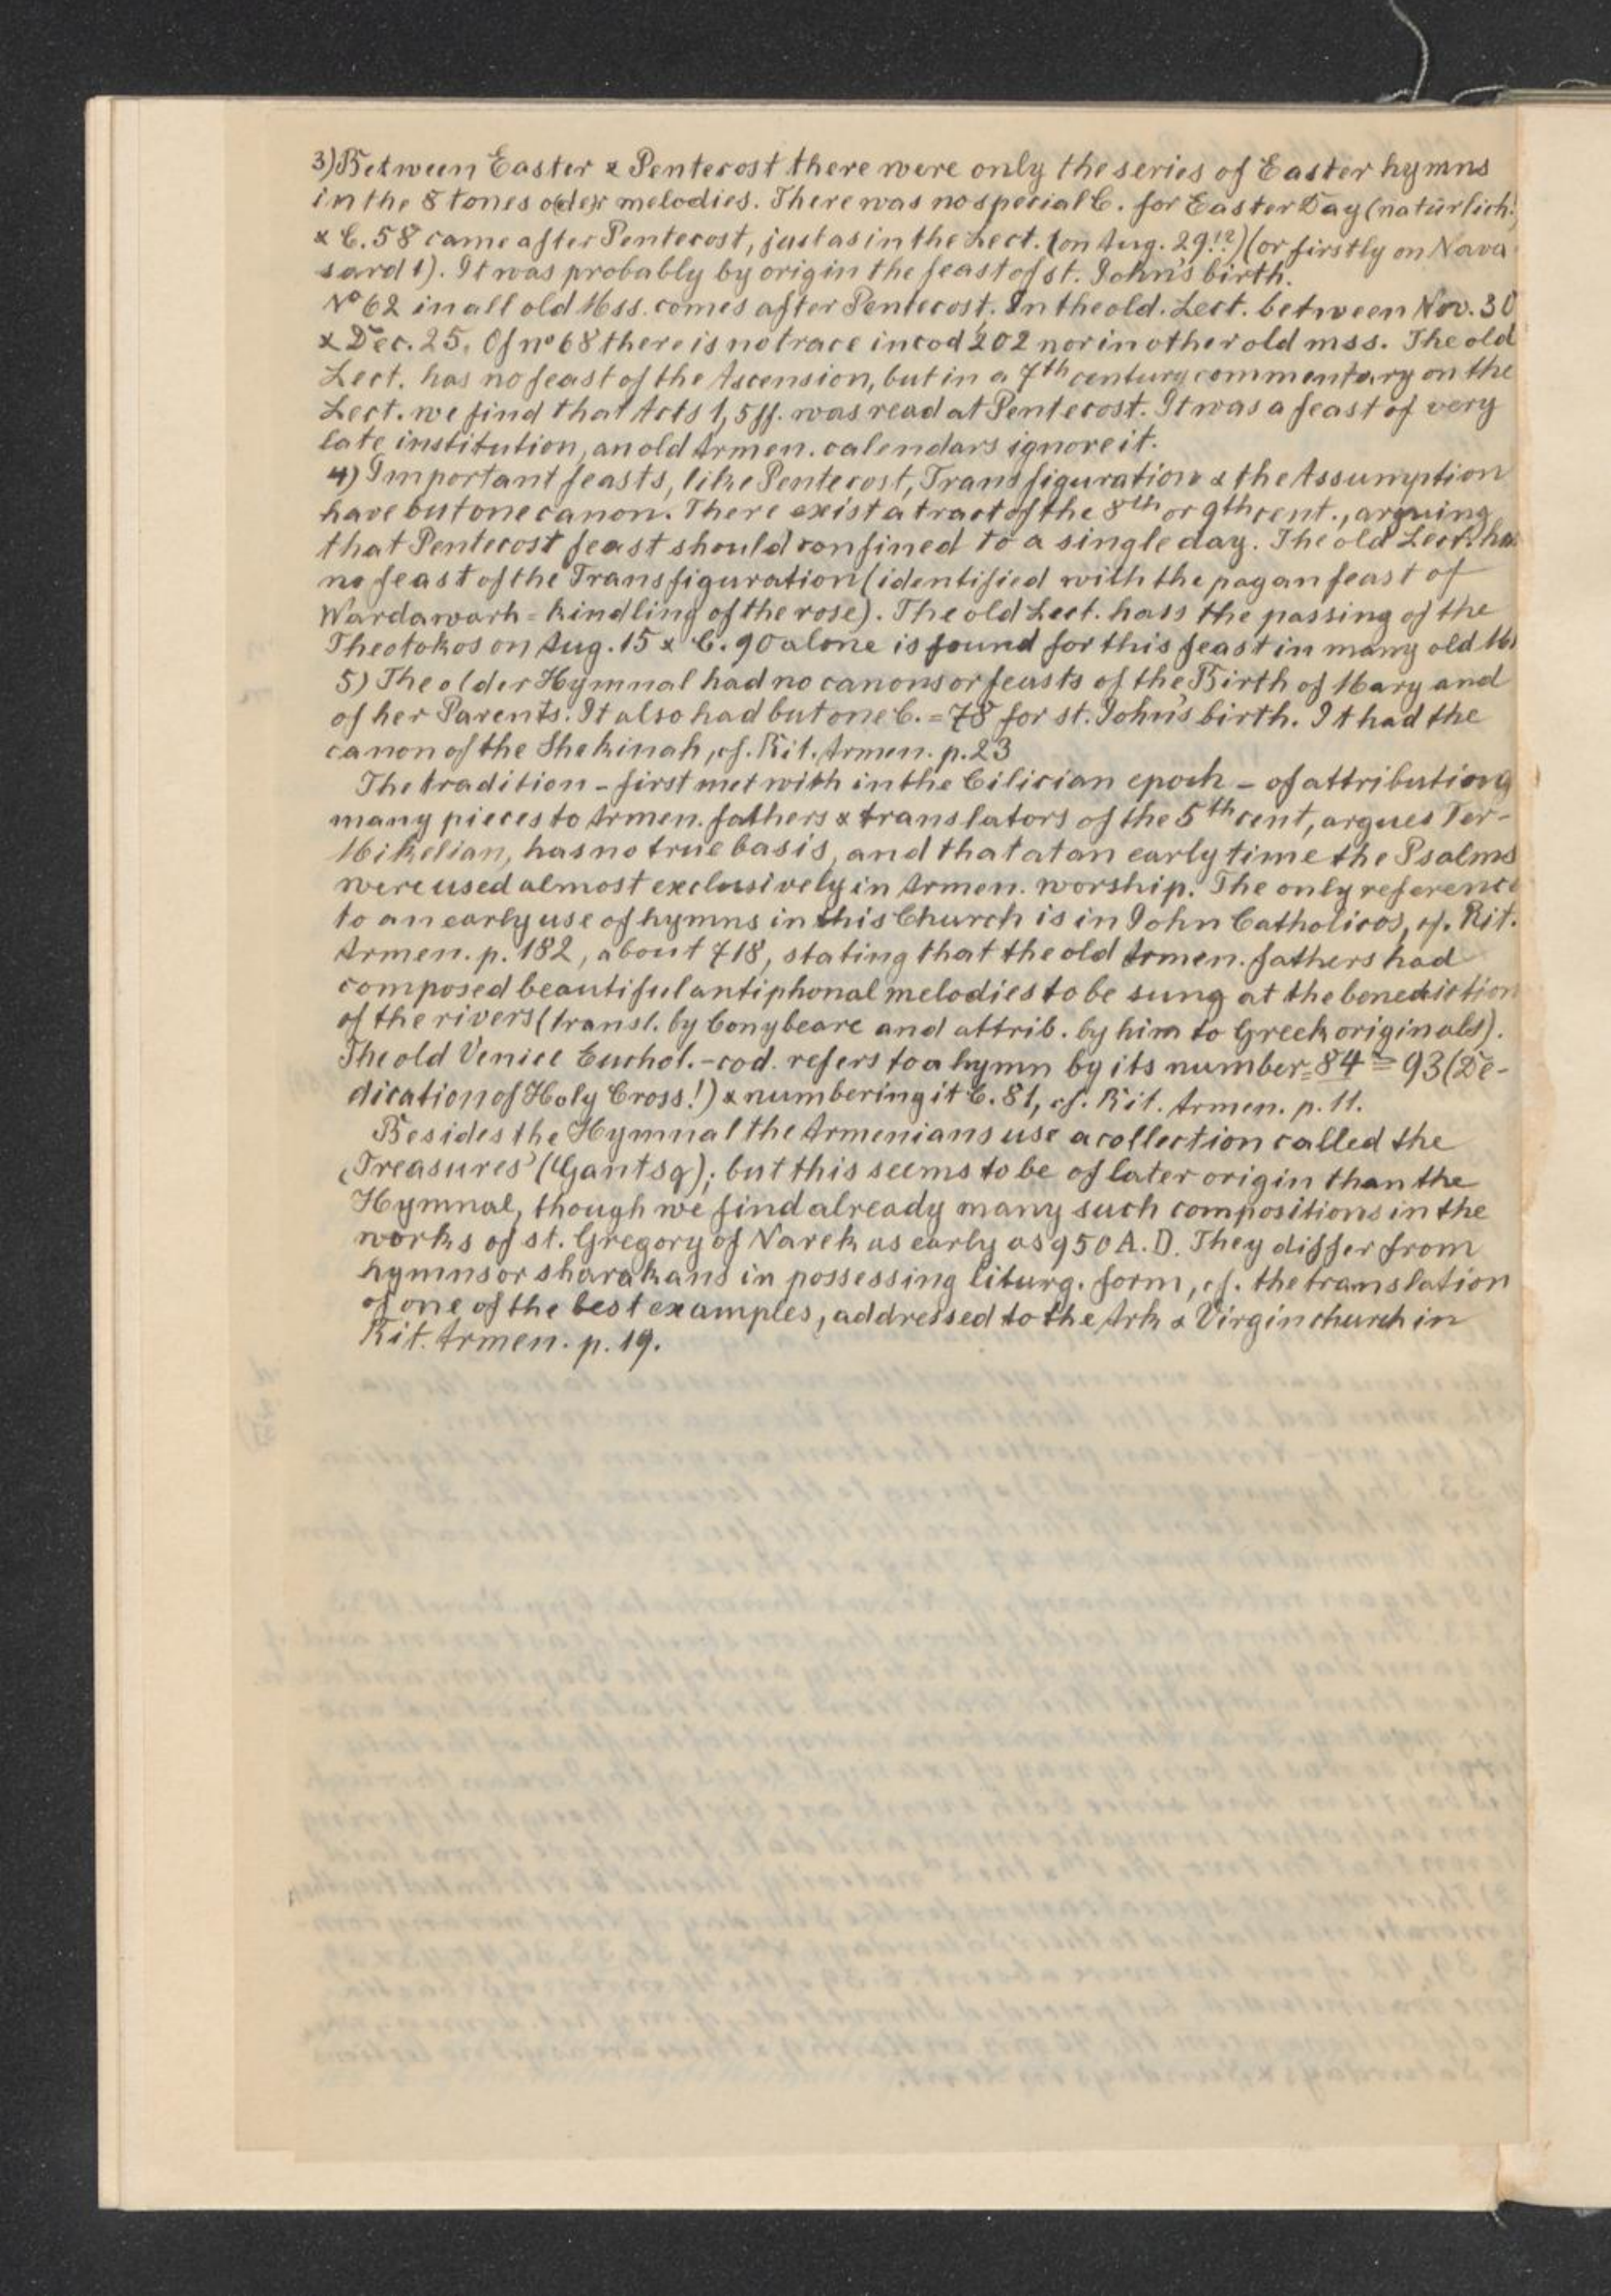 3) Between Easter & Pentecost there were only the series of Easter hymns
in the 8 tones o(de)r melodies. There was no special C. for Easter Day (natürlich!)
& C. 58 came after Pentecost, just as in the Lect. (on Aug. 29!?) (or firstly on Nava-
sard 1). It was probably by origin the feast of st. John's birth.
Nº 62 in all old Mss. comes after Pentecost. In the old. Lect. between Nov. 30
& Dec. 25. Of nº 68 there is no trace in cod 202 nor in other old mss. The old
Lect. has no feast of the Ascension, but in a 7th century commentary on the
Lect. we find that Acts 1, 5 ff. was read at Pentecost. It was a feast of very
late institution, an old Armen. calendars ignore it.
4) Important feasts, like Pentecost, Transfiguration & the Assumption
have but one canon. There exist a tract of the 8th or 9th cent., arguing
that Pentecost feast should confined to a single day. The old Lect. has
no feast of the Transfiguration (identified with the pagan feast of
Wardawarh = kindling of the rose). The old Lect. hass the passing of the
Theotokos on Aug. 15 & C. 90 alone is found for this feast in many old Ms
5) The older Hymnal had no canons or feasts of the Birth of Mary and
of her Parents. It also had but one C. = 78 for st. John's birth. It had the
canon of the Shekinah, cf. Rit. Armen. p. 23
The tradition - first met with in the Cilician epoch - of attributiong
many pieces to Armen. fathers & translators of the 5th cent, argues Ter-
Mikelian, has no true basis, and that at an early time the Psalms
were used almost exclusively in Armen. worship. The only reference
to an early use of hymns in this Church is in John Catholicos, cf. Rit.
Armen. p. 182, about 718, stating that the old Armen. fathers had
composed beautiful antiphonal melodies to be sung at the benediction
of the rivers (transl. by Conybeare and attrib. by him to Greek originals).
The old Venice Euchol.-cod. refers to a hymn by its number = 84 = 93 (De-
dication of Holy Cross!) & numbering it C. 81, cf. Rit. Armen. p. 11.
Besides the Hymnal the Armenians use a collection called the
‚Treasures' (Gantsq); but this seems to be of later origin than the
Hymnal, though we find already many such compositions in the
works of st. Gregory of Narek as early as 950 A. D. They differ from
hymns or sharakans in possessing liturg. form, cf. the translation
of one of the best examples, addressed to the Ark & Virgin church in
Rit. Armen. p. 19.